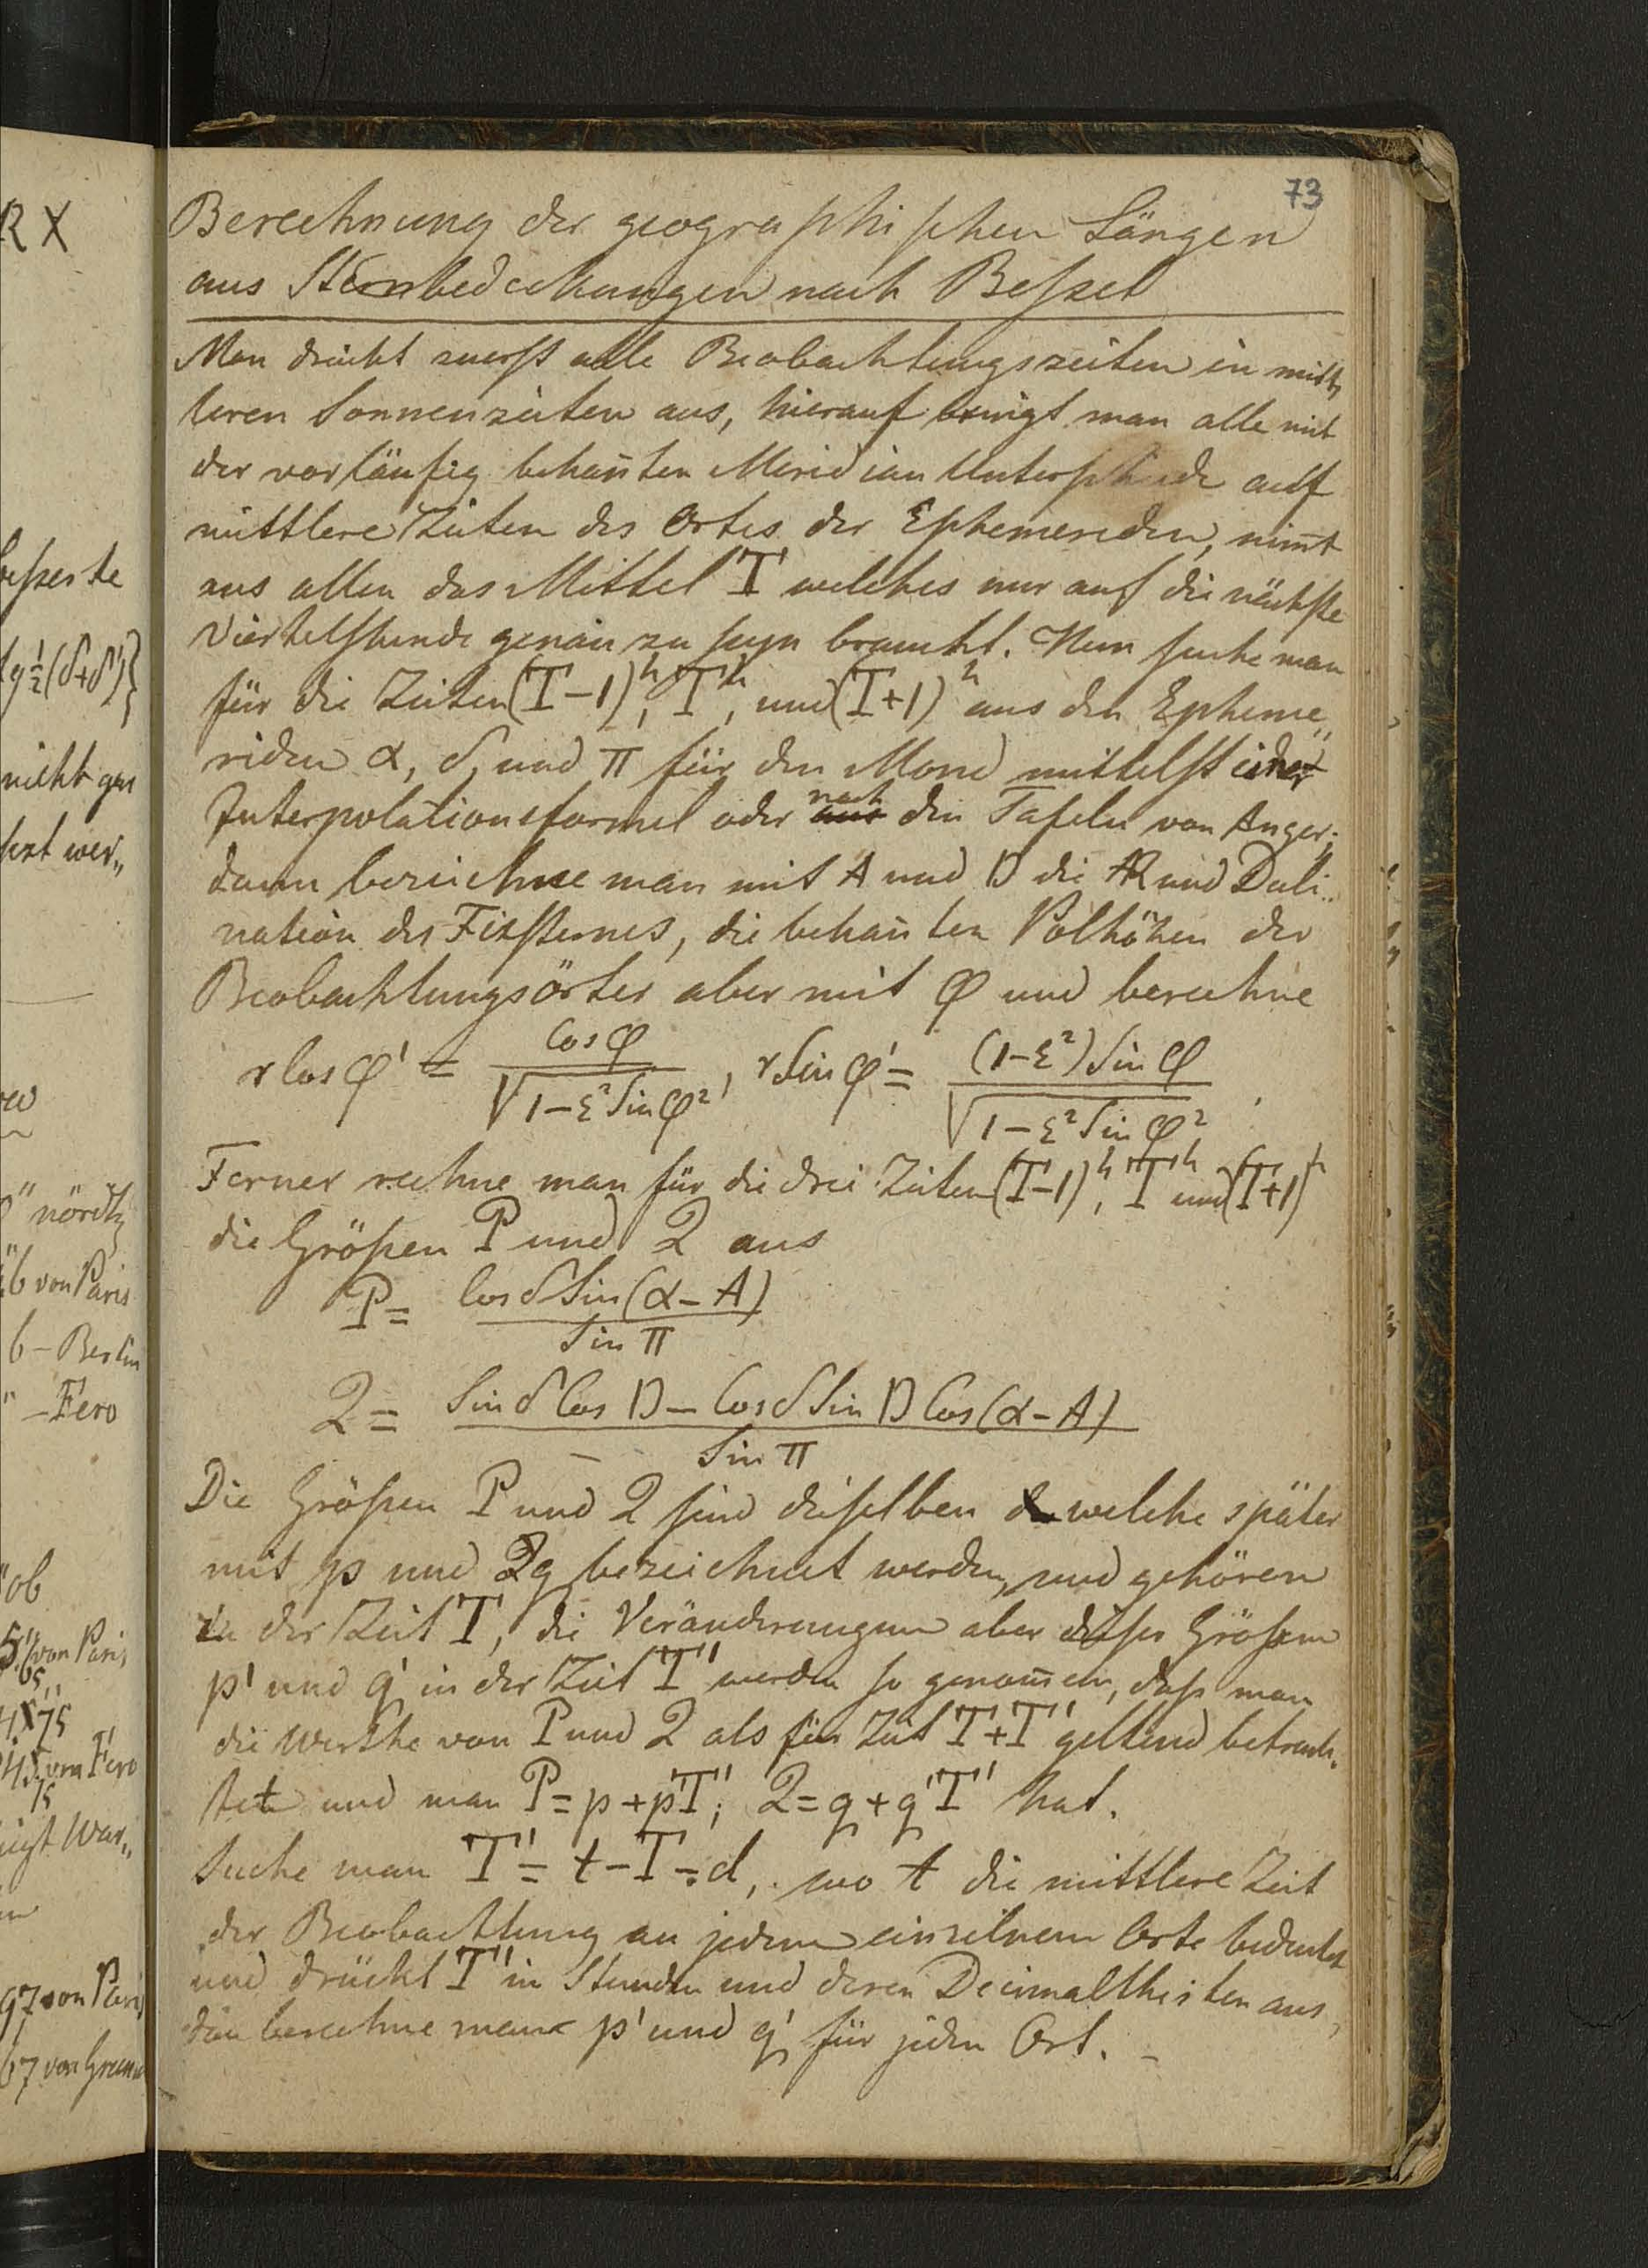 73
Berechnung der geographischen Längen
aus Sternbedeckungen nach Beßel
Man drückt zuerst alle Beobachtungszeiten in mitt„
leren Sonnenzeiten aus, hierauf bringt man alle mit
der vorläufig bekan̄ten Meridian Unterschiede auf
mittlere Zeiten des Ortes der Ephemeriden, nim̄t
aus allen das Mittel T welches nur auf die nächste
Viertelstunde genau zu seyn braucht. Nun suche man
für die Zeiten (T-1)ʰ, Tʰ, und (T+1)ʰ aus den Epheme„
riden α, δ, und π für den Mond mittelst einer
Interpolationsformel oder aus nach den Tafeln von Anger;
dann bezeichne man mit A und D die AR und Decli„
nation des Fixsternes, die bekan̄ten Polhöhen der
Beobachtungsörter aber mit φ und berechne
r Cos φ' = Cos φ / √(1-ε² Sin φ²), r Sin φ' = (1-ε²) Sin φ / √(1-ε² Sin φ²).
Ferner rechne man für die drei Zeiten (T-1)ʰ, Tʰ und (T+1)ʰ
die Größen P und Q aus
P = Cos δ Sin (α-A) / Sin π
Q = Sin δ Cos D - Cos δ Sin D Cos (α-A) / Sin π
Die Größen P und Q sind dieselben welche später
mit p und q bezeichnet werden, und gehören
zu der Zeit T, die Veränderungen aber dieser Größen
p' und q' in der Zeit T' werden so genom̄en, daß man
die Werthe von P und Q als für Zeit T+T' geltend betrach„
tet und man P = p + p'T'; Q = q + q'T' hat.
Suche man T' = t - T - d, wo t die mittlere Zeit
der Beobachtung an jedem einzelnem Orte bedeutet
und drückt T' in Stunden und deren Decimaltheilen aus,
dan̄ berechne man p' und q' für jeden Ort. -
R X
beßerte
tg ½(δ+δ')}
nicht gen
wer„
" nördl
6 von Paris
6 - Berlin
" - Fero
ob
von Paris
75
45 von Fero
75
War„
97 von Paris
67 von Green